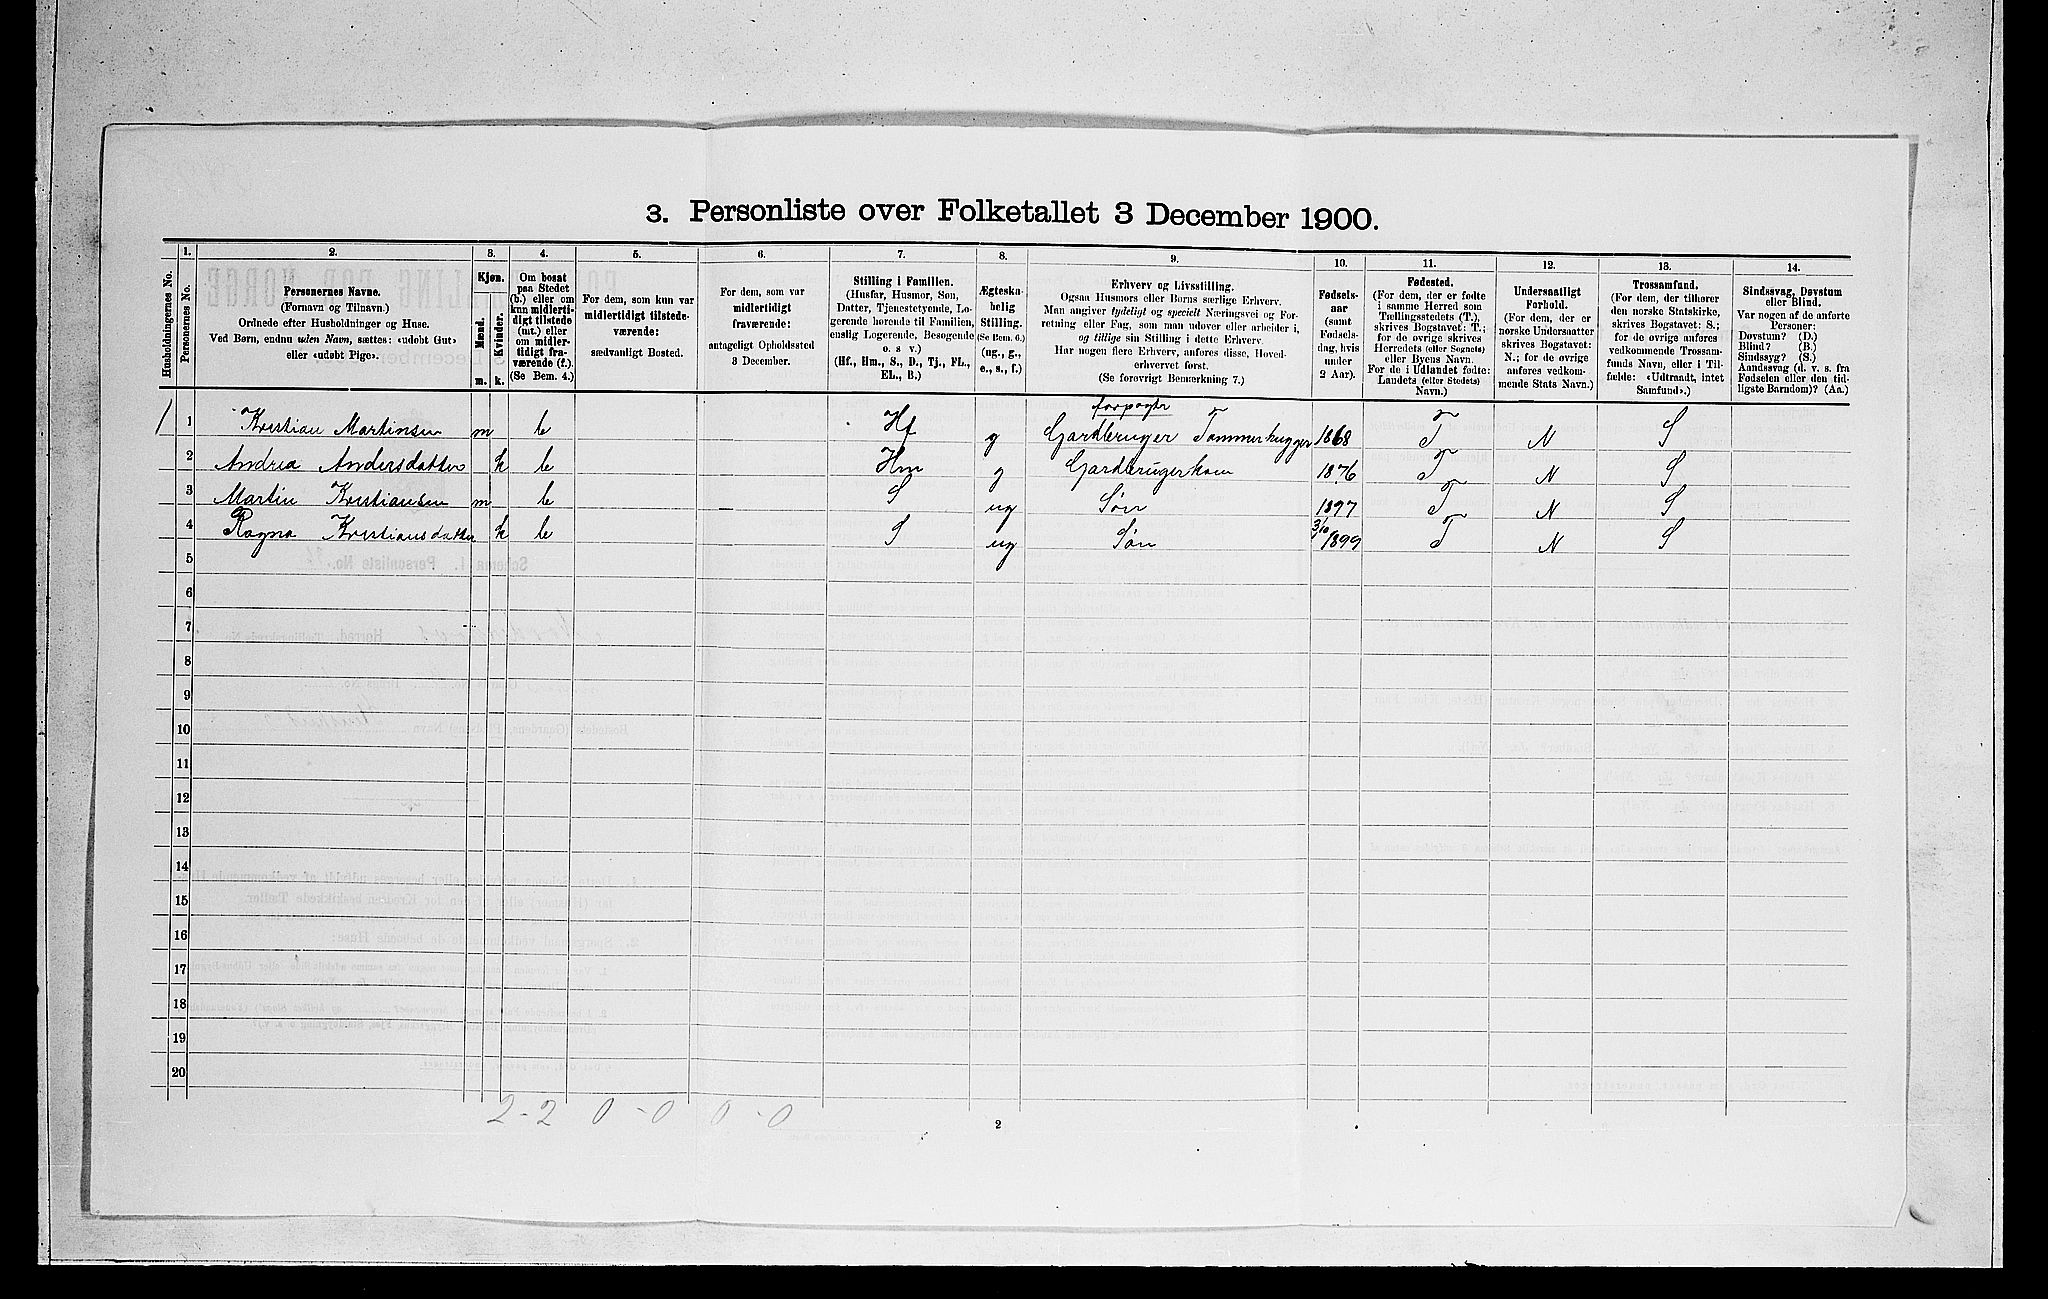 3. Personliste over Folketallet 3 December 1900.
1. 2. 3. 4. 5. 6. 7. 8. 9. 10. 11. 12. 13. 14.
Husholdningernes No.
Personernes No.
Personernes Navne.
(Fornavn og Tilnavn.)
Ordnede efter Husholdninger og Huse.
Ved Børn, endnu uden Navn, sættes: «udøbt Gut»
eller «udøbt Pige».
Kjøn.
Mænd.
Kvinder.
m. k.
Om bosat
paa Stedet
(b.) eller om
kun midlerti-
digt tilstede
(mt.) eller
om midler-
tidigt fra-
værende (f.).
(Se Bem. 4.)
For dem, som kun var
midlertidigt tilstede-
værende:
sædvanligt Bosted.
For dem, som var
midlertidigt
fraværende:
antageligt Opholdssted
3 December.
Stilling i Familien.
(Husfar, Husmor, Søn,
Datter, Tjenestetyende, Lo-
gerende hørende til Familien,
enslig Logerende, Besøgende
o. s. v.)
(Hf., Hm., S., D., Tj., FL.,
EL., B.)
Ægteska-
belig
Stilling.
(Se Bem. 6.)
(ug., g.,
e., s., f.)
Erhverv og Livsstilling.
Ogsaa Husmors eller Børns særlige Erhverv.
Man angiver tydeligt og specielt Næringsvei og For-
retning eller Fag, som man udøver eller arbeider i,
og tillige sin Stilling i dette Erhverv.
Har nogen flere Erhverv, anføres disse, Hoved-
erhvervet først.
(Se forøvrigt Bemærkning 7.)
Fødsels-
aar
(samt
Fødsels-
dag, hvis
under
2 Aar).
Fødested.
(For dem, der er fødte
i samme Herred som
Tællingsstedets (T.),
skrives Bogstavet: T.;
for de øvrige skrives
Herredets (eller Sognets)
eller Byens Navn.
For de i Udlandet fødte:
Landets (eller Stedets)
Navn.)
Undersaatligt
Forhold.
(For dem, der er
norske Undersaatter
skrives Bogstavet:
N.; for de øvrige
anføres vedkom-
mende Stats Navn.)
Trossamfund.
(For dem, der tilhører
den norske Statskirke,
skrives Bogstavet: S.;
for de øvrige anføres
vedkommende Trossam-
funds Navn, eller i Til-
fælde: «Udtraadt, intet
Samfund».)
Sindssvag, Døvstum
eller Blind.
Var nogen af de anførte
Personer:
Døvstum? (D.)
Blind? (B.)
Sindssyg? (S.)
Aandssvag (d. v. s. fra
Fødselen eller den tid-
ligste Barndom)? (Aa.)
forpagter
1 1 Kristian Martinsen m b Hf g Gardbruger Tømmerhugger 1868 T N S
2 Andrea Andersdatter k b Hm g Gardbrugerkone 1876 T N S
3 Martin Kristiansen m b S ug Søn 1897 T N S
4 Ragna Kristiansdatter k b S ug Søn 3/10 1899 T N S
5
6
7
8
9
10
11
12
13
14
15
16
17
18
19
20
2-2 0-0 0-0
2